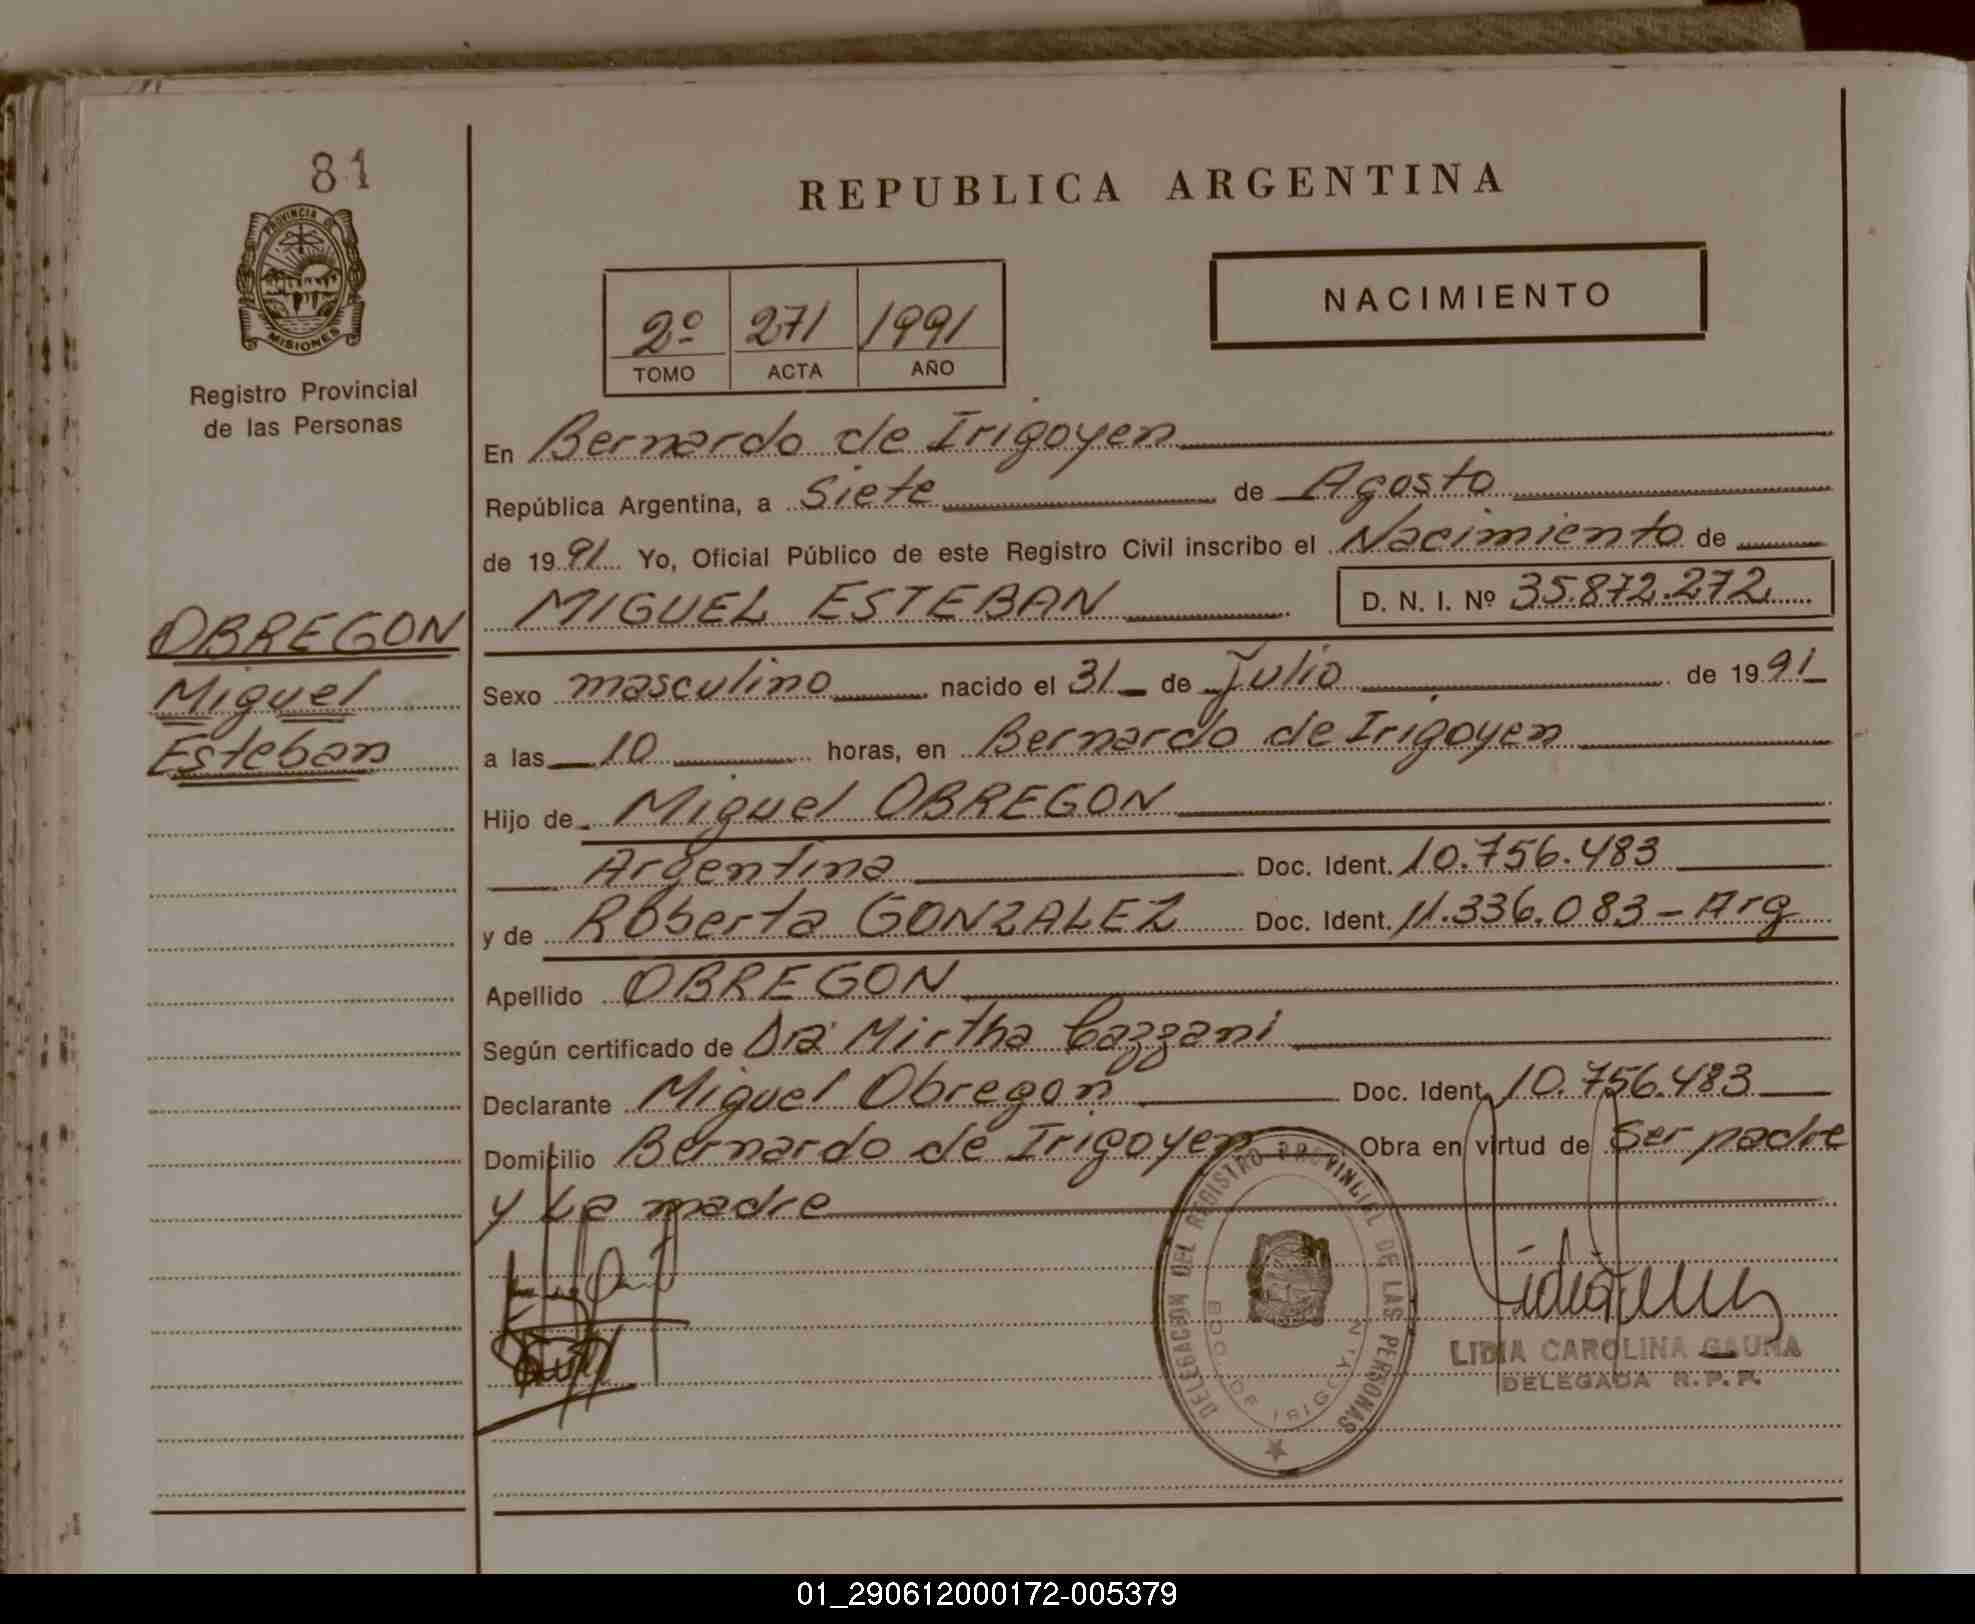 81
PROVINCIA DE
MISIONES
Registro Provincial
de las Personas
OBREGON
Miguel
Esteban
REPUBLICA ARGENTINA
2º 271 1991
TOMO ACTA AÑO
NACIMIENTO
En Bernardo de Irigoyen
República Argentina, a Siete de Agosto
de 1991 Yo, Oficial Público de este Registro Civil inscribo el Nacimiento de
MIGUEL ESTEBAN D. N. I. Nº 35.872.272
Sexo masculino nacido el 31 de Julio de 1991
a las 10 horas, en Bernardo de Irigoyen
Hijo de Miguel OBREGON
Argentina Doc. Ident. 10.756.483
y de Roberta GONZALEZ Doc. Ident. 11.336.083 - Arg
Apellido OBREGON
Según certificado de Dra Mirtha Cazzani
Declarante Miguel Obregon Doc. Ident. 10.756.483
Domicilio Bernardo de Irigoyen Obra en virtud de Ser padre
y La madre
DELEGACION DEL REGISTRO PROVINCIAL DE LAS PERSONAS
BDO. DE IRIGOYEN
LIBIA CAROLINA GAUNA
DELEGADA R. P. P.
01_290612000172-005379